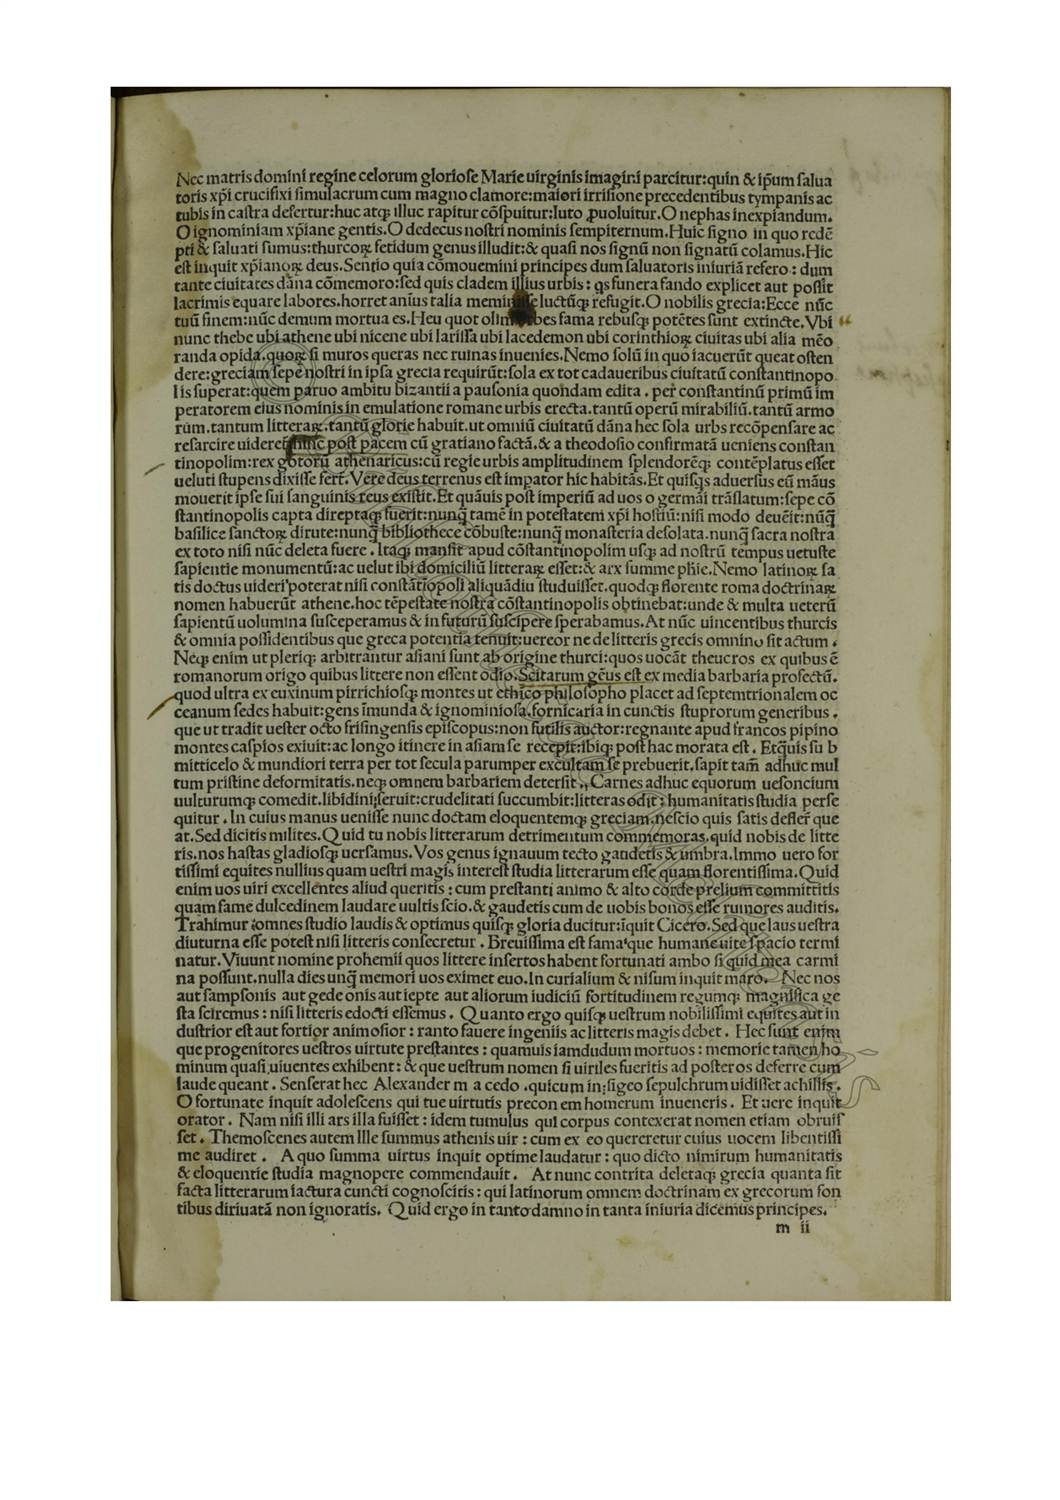 Nec matris domini regine celorum gloriose Marie uirginis imagini parcitur:quin & ip̄um salua
toris xp̄i crucifixi simulacrum cum magno clamore:maiori irrisione precedentibus tympanis ac
tubis in castra defertur:huc atqꝫ illuc rapitur cōspuitur:luto ꝓuoluitur.O nephas inexpiandum.
O ignominiam xp̄iane gentis.O dedecus nostri nominis sempiternum.Huic signo in quo redē
pti & saluati sumus:thurcoꝝ fetidum genus illudit:& quasi nos signū non signatū colamus.Hic
est inquit xp̄ianoꝝ deus.Sentio quia cōmouemini principes dum saluatoris iniuriā refero : dum
tante ciuitates dāna cōmemoro:sed quis cladem illius urbis : q̄s funera fando explicet aut possit
lacrimis equare labores.horret anius talia luctūqꝫ refugit.O nobilis grecia:Ecce nūc
tuū finem:nūc demum mortua es.Heu quot olim fama rebusqꝫ potētes sunt extincte.Vbi
nunc thebe ubi athene ubi nicene ubi larissa ubi lacedemon ubi corinthioꝝ ciuitas ubi alia mēo
randa opida.quoꝝ si muros queras nec ruinas inuenies.Nemo solū in quo iacuerūt queat osten
dere:greciam sepe nostri in ipsa grecia requirūt:sola ex tot cadaueribus ciuitatū constantinopo
lis superat:quem paruo ambitu bizantii a pausonia quondam edita . per constantinū primū im
peratorem eius nominis in emulatione romane urbis erecta.tantū operū mirabiliū.tantū armo
rum.tantum litteraꝝ.tantū glorie habuit.ut omniū ciuitatū dāna hec sola urbs recōpensare ac
resarcire post pacem cū gratiano factā.& a theodosio confirmatā ueniens constan
tinopolim:rex gotorū athenaricus:cū regie urbis amplitudinem splendorēqꝫ contēplatus esset
ueluti stupens dixisse fert̄.Vere deus terrenus est impator hic habitās.Et quisqs aduersus eū māus
mouerit ipse sui sanguinis reus existit.Et quāuis post imperiū ad uos o germāi trāslatum:sepe cō
stantinopolis capta direptaqꝫ fuerit:nunq̄ tamē in potestatem xp̄i hostiū:nisi modo deuēit:nūq̄
basilice sanctoꝝ dirute:nunq̄ bibliothece cōbuste:nunq̄ monasteria desolata.nunq̄ sacra nostra
ex toto nisi nūc deleta fuere . Itaqꝫ mansit apud cōstantinopolim usqꝫ ad nostrū tempus uetuste
sapientie monumentū:ac uelut ibi domiciliū litteraꝝ esset:& arx summe phie.Nemo latinoꝝ sa
tis doctus uideri poterat nisi constātiopoli aliquādiu studuisset.quodqꝫ florente roma doctrinaꝝ
nomen habuerūt athene.hoc tēpestate nostra cōstantinopolis obtinebat:unde & multa ueterū
sapientū uolumina susceperamus & in futurū suscipere sperabamus.At nūc uincentibus thurcis
& omnia possidentibus que greca potentia tenuit:uereor ne de litteris grecis omnino sit actum .
Neqꝫ enim ut pleriqꝫ arbitrantur asiani sunt ab origine thurci:quos uocāt theucros ex quibus ē
romanorum origo quibus littere non essent odio.Scitarum gēus est ex media barbaria profectū.
quod ultra ex euxinum pirrichiosqꝫ montes ut ethico philosopho placet ad septemtrionalem oc
ceanum sedes habuit:gens īmunda & ignominiosa.fornicaria in cunctis stuprorum generibus .
que ut tradit uester octo frisingensis episcopus:non futilis auctor:regnante apud francos pipino
montes caspios exiuit:ac longo itinere in asiam se recepit:ibiqꝫ post hac morata est . Etq̄uis su b
mitticelo & mundiori terra per tot secula parumper excultam se prebuerit.sapit tam̄ adhuc mul
tum pristine deformitatis.neqꝫ omnem barbariem detersit . Carnes adhuc equorum uesoncium
uulturumqꝫ comedit.libidini seruit:crudelitati succumbit:litteras odit : humanitatis studia perse
quitur . In cuius manus uenisse nunc doctam eloquentemqꝫ greciam.nescio quis satis defler̄ que
at.Sed dicitis milites.Quid tu nobis litterarum detrimentum commemoras.quid nobis de litte
ris.nos hastas gladiosqꝫ uersamus.Vos genus ignauum tecto gaudetis & umbra.Immo uero for
tissimi equites nullius quam uestri magis interest studia litterarum esse quam florentissima.Quid
enim uos uiri excellentes aliud queritis : cum prestanti animo & alto corde prelium committitis
quam fame dulcedinem laudare uultis scio.& gaudetis cum de uobis bonos esse rumores auditis.
Trahimur omnes studio laudis & optimus quisqꝫ gloria ducitur:īquit Cicero.Sed que laus uestra
diuturna esse potest nisi litteris consecretur . Breuissima est fama que humane uite spacio termi
natur.Viuunt nomine prohemii quos littere insertos habent fortunati ambo si quid mea carmi
na possunt.nulla dies unq̄ memori uos eximet euo.In curialium & nisum inquit maro. Nec nos
aut sampsonis aut gede onis aut iepte aut aliorum iudiciū fortitudinem regumqꝫ magnifica ge
sta sciremus : nisi litteris edocti essemus . Quanto ergo quisqꝫ uestrum nobilissimi equites aut in
dustrior est aut fortior animosior : ranto fauere ingeniis ac litteris magis debet . Hec sunt enim
que progenitores uestros uirtute prestantes : quamuis iamdudum mortuos : memorie tamen ho
minum quasi uiuentes exhibent : & que uestrum nomen si uiriles fueritis ad posteros deferre cum
laude queant . Senserat hec Alexander m a cedo .qui cum in sigeo sepulchrum uidisset achillis.
O fortunate inquit adolescens qui tue uirtutis precon em homerum inueneris . Et uere inquit
orator . Nam nisi illi ars illa fuisset : idem tumulus qui corpus contexerat nomen etiam obruis
set . Themoscenes autem Ille summus athenis uir : cum ex eo quereretur cuius uocem libentissi
me audiret . A quo summa uirtus inquit optime laudatur : quo dicto nimirum humanitatis
& eloquentie studia magnopere commendauit . At nunc contrita deletaqꝫ grecia quanta sit
facta litterarum iactura cuncti cognoscitis : qui latinorum omnem doctrinam ex grecorum fon
tibus diriuatā non ignoratis. Quid ergo in tanto damno in tanta iniuria dicemus principes.
m ii